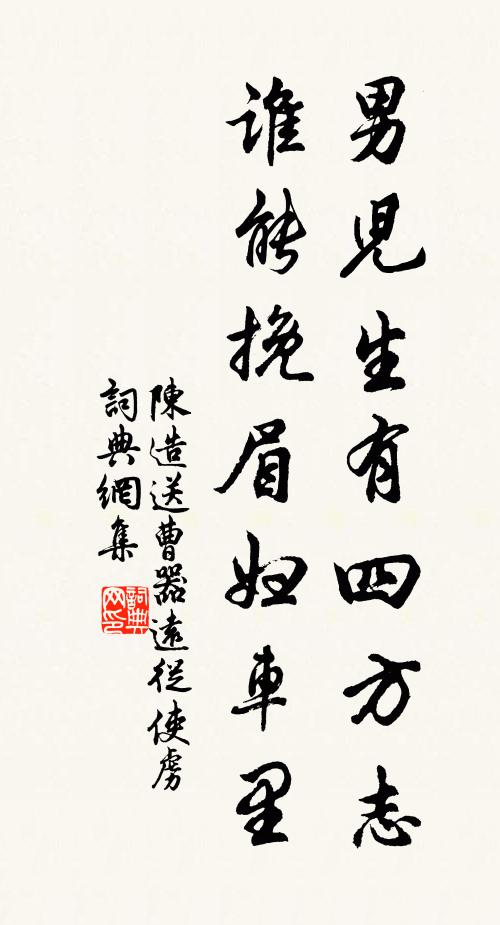 男兒生有四方志
誰能挽眉妇車里
陳造送曹器遠從使虜
詞典網集
詞典网印